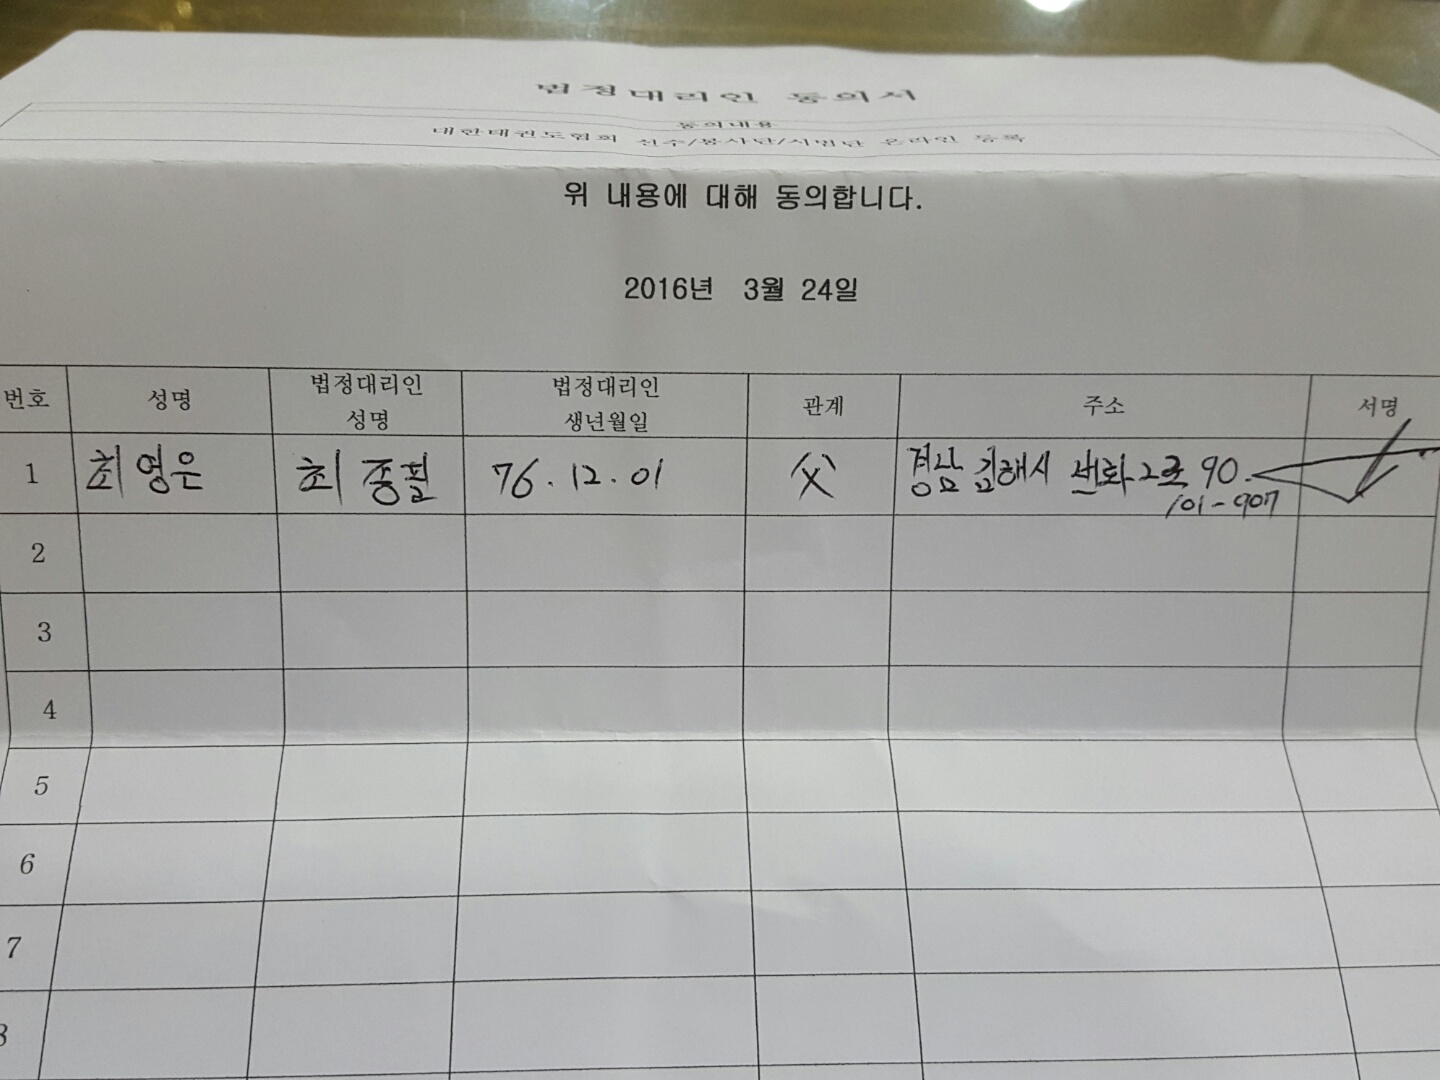 법정대리인 동의서
동의내용
대한태권도협회 선수/봉사단/시범단 온라인 등록
위 내용에 대해 동의합니다.
2016년 3월 24일
번호 성명 법정대리인 성명 법정대리인 생년월일 관계 주소 서명
1 최영은 최종필 76.12.01 父 경남 김해시 번화2로 90.
101-907
2
3
4
5
6
7
8